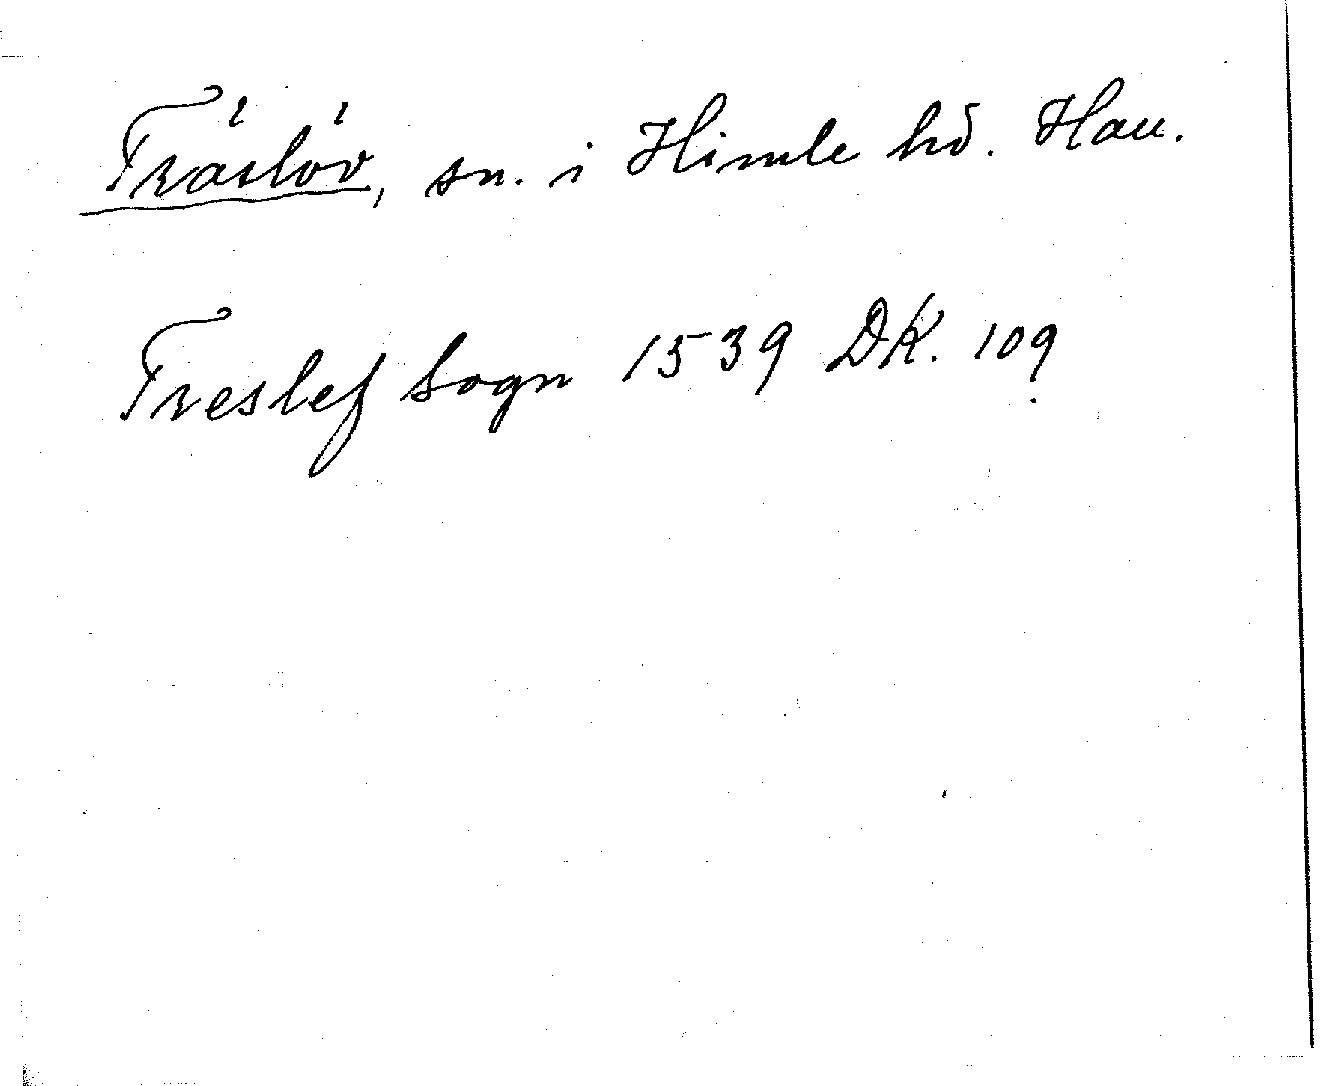 Träslöv, sn. i Himle hd. Hall.
Treslef Sogn 1539 DK. 109